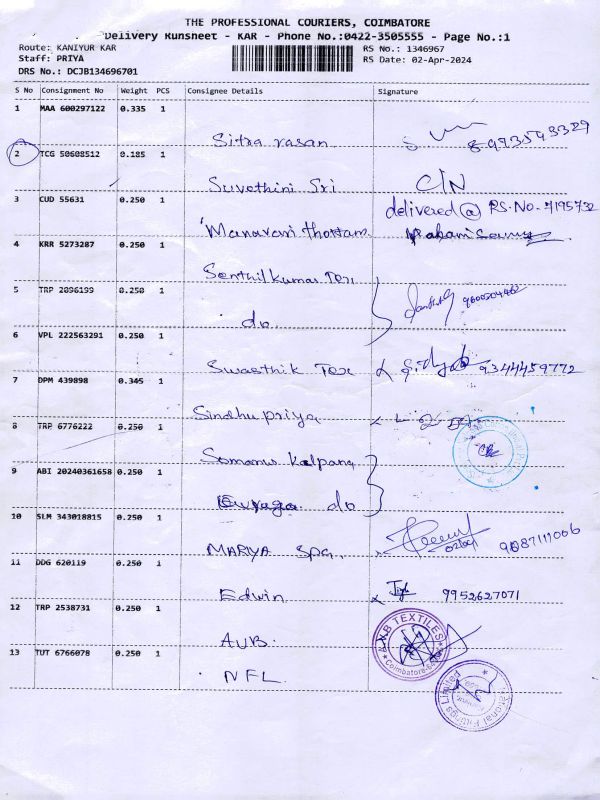 THE PROFESSIONAL COURIERS, COIMBATORE
Delivery Runsheet - KAR - Phone No.:0422-3505555 - Page No.:1
Route: KANIYUR KAR
RS No.: 1346967
Staff: PRIYA
RS Date: 02-Apr-2024
DRS No.: DCJB134696701
S No Consignment No Weight PCS Consignee Details Signature
1 MAA 600297122 0.335 1
Sitra rasan 8993593329
2 TCG 50608512 0.185 1
Suvethini Sri C/N
3 CUD 55631 0.250 1
delivered @ RS.No.7195732
Manavari thottam
4 KRR 5273287 0.250 1
Senthilkumar Tex
5 TRP 2096199 0.250 1
do
6 VPL 222563291 0.250 1
Swasthik Tex 9344459772
7 DPM 439898 0.345 1
Sindhu priya
8 TRP 6776222 0.250 1
Somanur Kalpana
9 ABI 20240361658 0.250 1
do
10 SLM 343018815 0.250 1
MARIYA Spa. 9087111006
11 DDG 620119 0.250 1
Edwin 9952627071
12 TRP 2538731 0.250 1
AUB. TEXTILES Coimbatore
13 TUT 6766078 0.250 1
NFL.
National Fittings Limited